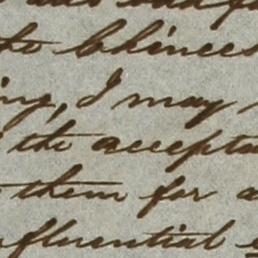 the Chinees
ing, I may
the accepta
them for a
nfluential